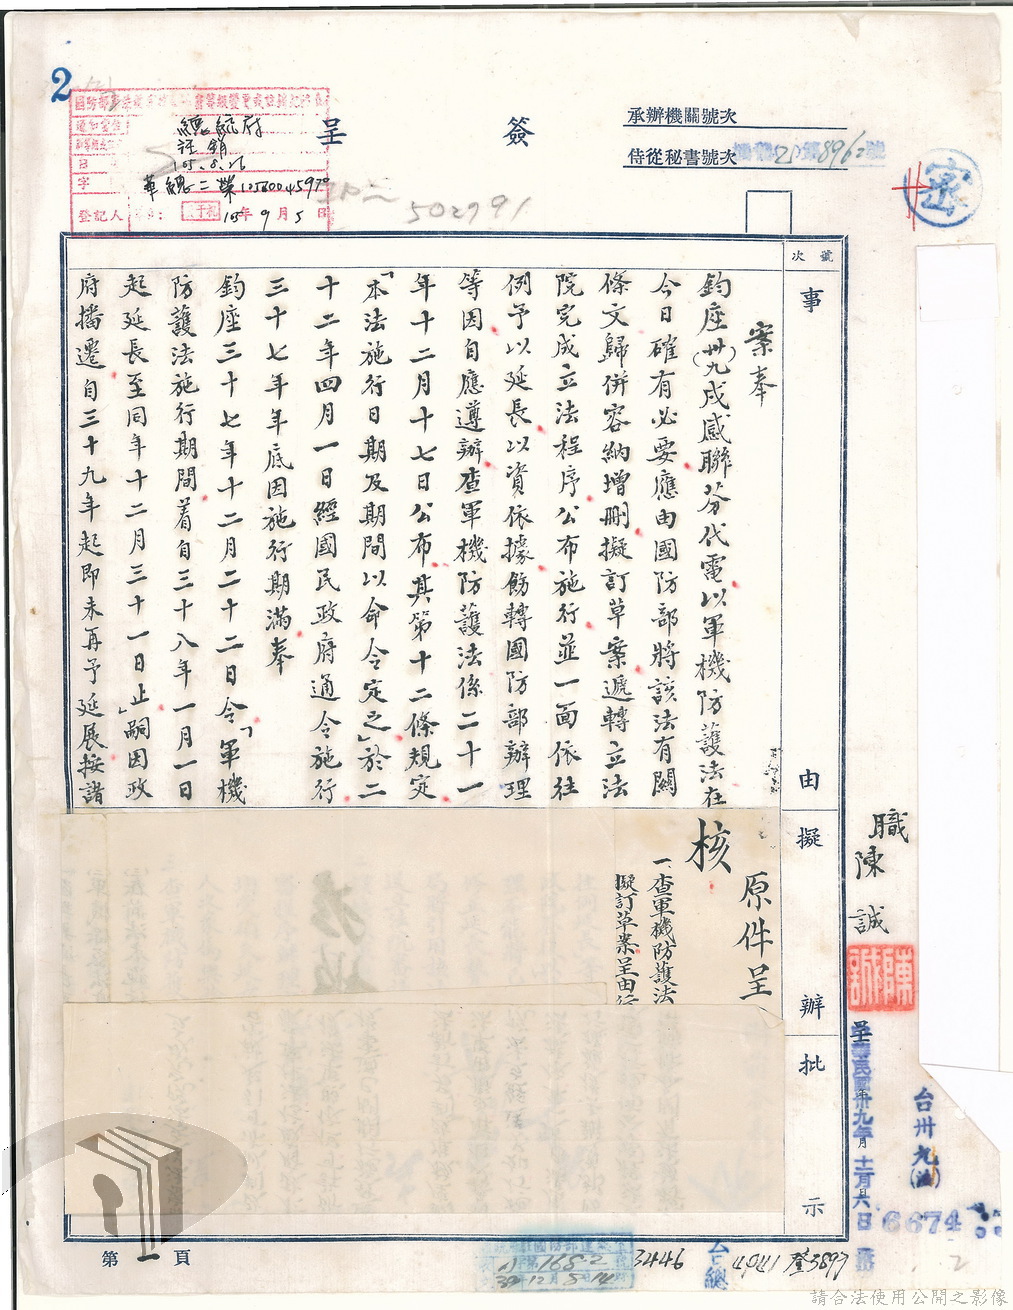 2
簽
呈
承辦機關號次
侍從秘書號次
8962號
密
總統府
註銷
105.8.26
105年9月5日
登記人
502791
號次
事
由
擬
辦
批
示
案奉
鈞座(卅九)戌感聯芬代電以軍機防護法在
今日確有必要應由國防部將該法有關
條文歸併容納增刪擬訂草案遞轉立法
院完成立法程序公布施行並一面依往
例予以延長以資依據飭轉國防部辦理
等因自應遵辦查軍機防護法係二十一
年十二月十七日公布其第十二條規定
「本法施行日期及期間以命令定之」於二
十二年四月一日經國民政府通令施行
三十七年年底因施行期滿奉
鈞座三十七年十二月二十二日令「軍機
防護法施行期間着自三十八年一月一日
起延長至同年十二月三十一日止」嗣因政
府播遷自三十九年起即未再予延展按諸
原件呈
核
一查軍機防護法
擬訂草案呈由行
職
陳
誠
呈
中華民國卅九年十二月六日
台卅九(法)
6674號
第一頁
3446
台總
4941
登3897
請合法使用公開之影像